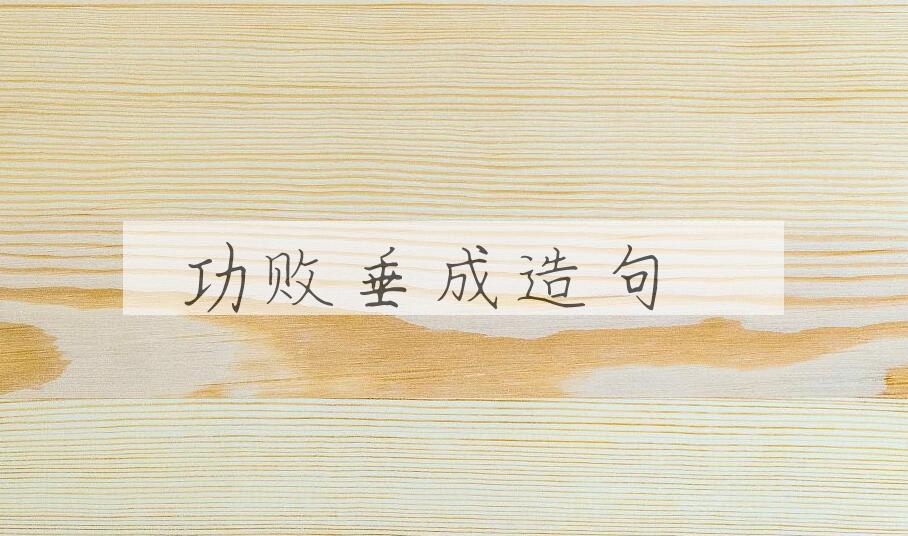 功败垂成造句